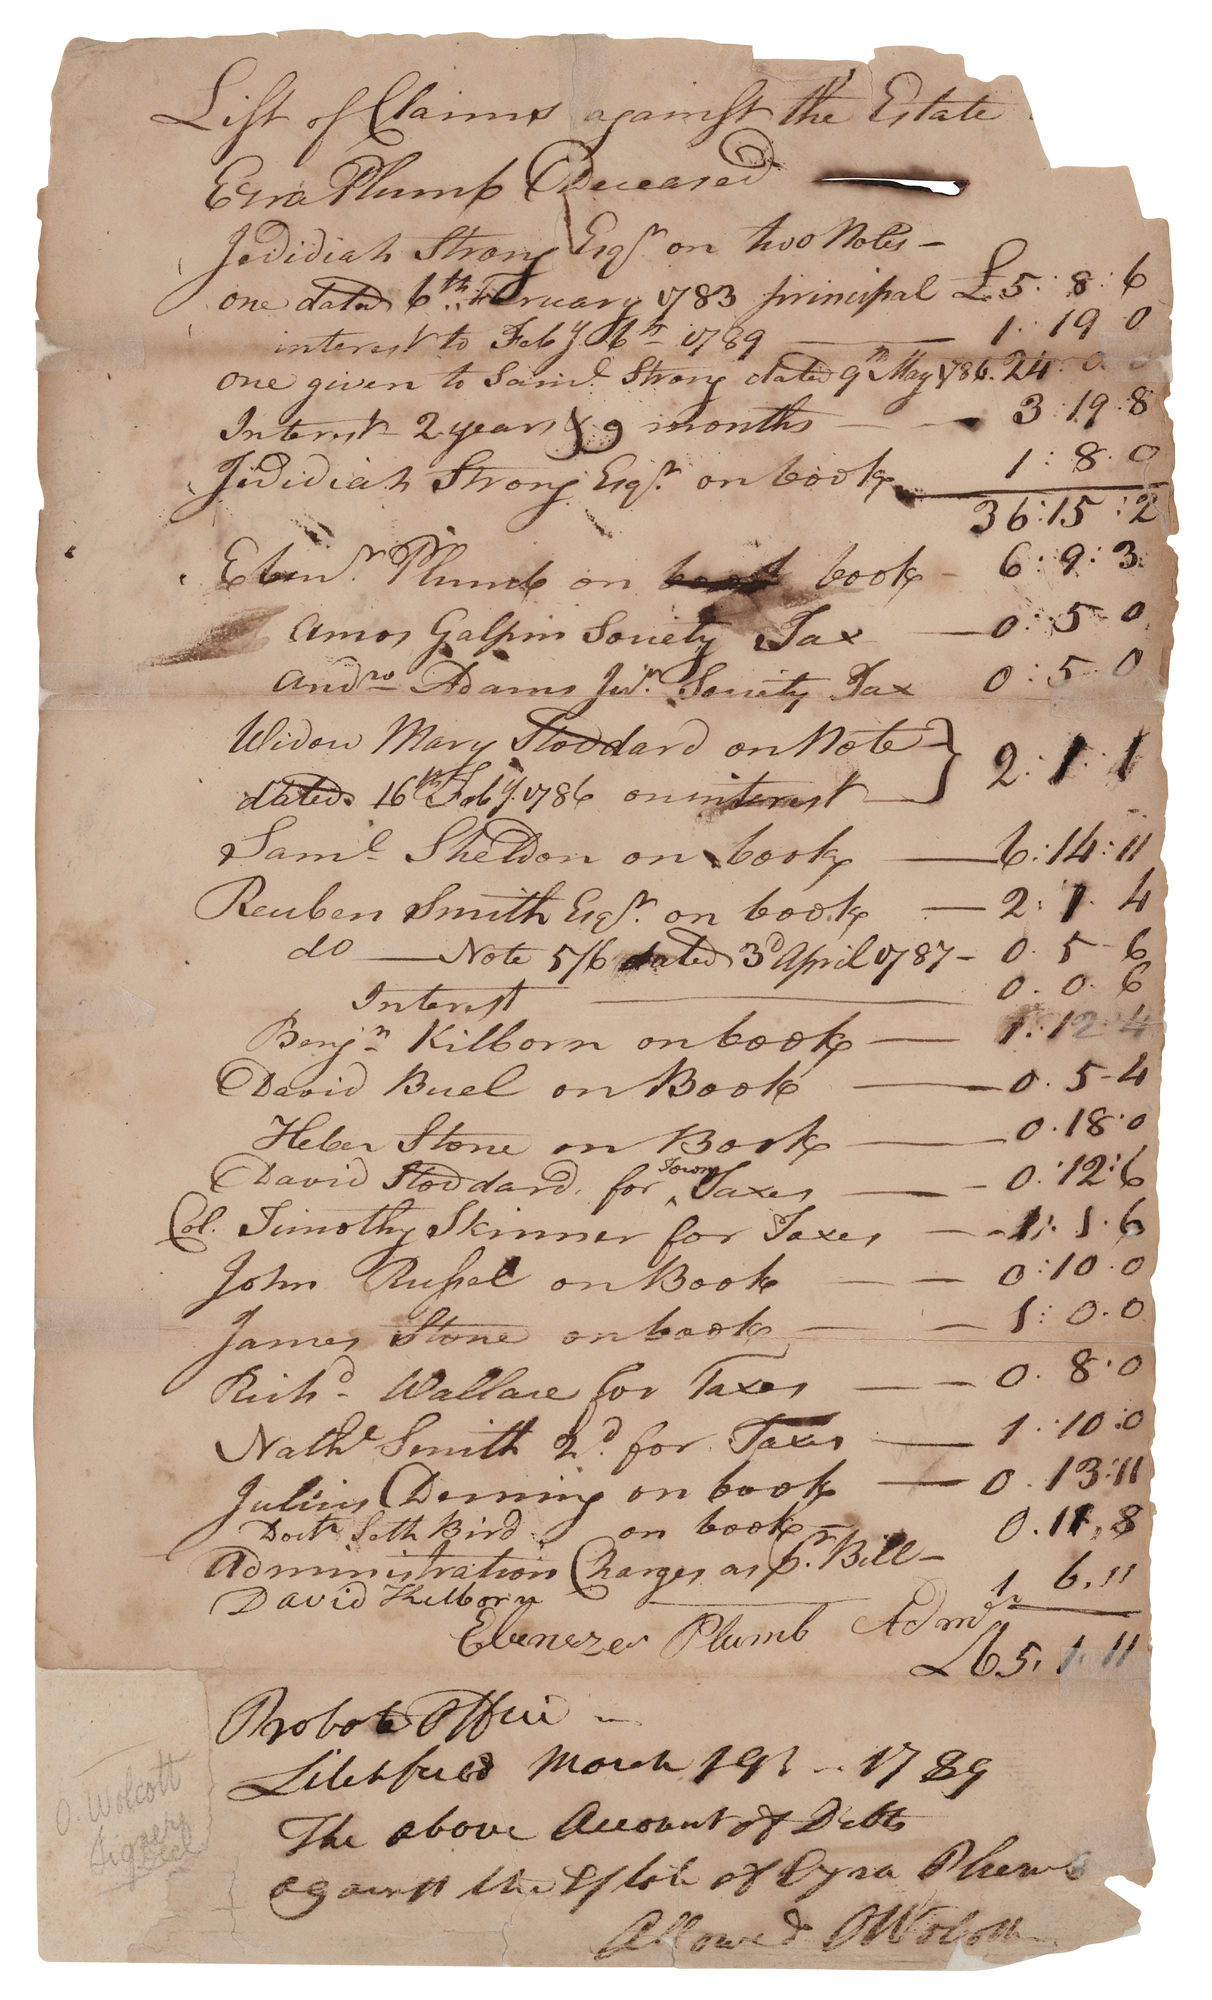 List of Claims against the Estate
Ezra Plumb Deceased
Jedidiah Strong Esqr. on two Notes -
one dated 6th. February 1783 principal £5 : 8 : 6
interest to Feby 6th 1789 — 1 : 19 0
one given to Saml. Strong dated 9th May 1786. 24 . 0 . 0
Interest 2 years & 9 months — 3 : 19 : 8
Jedidiah Strong Esqr. on book 1 : 8 . 0
36 : 15 : 2
Ebenr. Plumb on book - 6 : 9 : 3
Amos Galpin Society Tax — 0 : 5 0
Andrw Adams Junr. Society Tax 0 : 5 . 0
Widow Mary Stoddard on Note } 2 : 1 : 1
dated 16th Feby. 1786 on interest
Saml. Sheldon on book — 6 : 14 : 11
Reuben Smith Esqr. on book — 2 : 1 . 4
do — Note 5/6 dated 3d April 1787 - 0 . 5 - 6
Interest — 0 . 0 . 6
Benjn. Kilborn on book — 1 : 12 : 4
David Buel on Book — 0 . 5 - 4
Heber Stone on Book — 0 . 18 : 0
David Stoddard for Town Taxes — 0 : 12 : 6
Col. Timothy Skinner for Taxes — 1 : 1 . 6
John Russel on Book — 0 : 10 . 0
James Stone on book — 1 : 0 . 0
Richd. Wallace for Taxes — 0 . 8 . 0
Nathl Smith 2d. for Taxes — 1 : 10 : 0
Julius Deming on book — 0 . 13 : 11
Doctr Seth Bird on book - 0 . 11 . 8
Administration Charges as pr. Bill - 1 . 6 . 11
David Kilborn
Ebenezer Plumb Admr
£65 . 1 . 11
Probate Office
Litchfield March 19th 1789
The above Account of Debts
against the Estate of Ezra Plumb
Allowed OWolcott
O. Wolcott
Signer
Decl